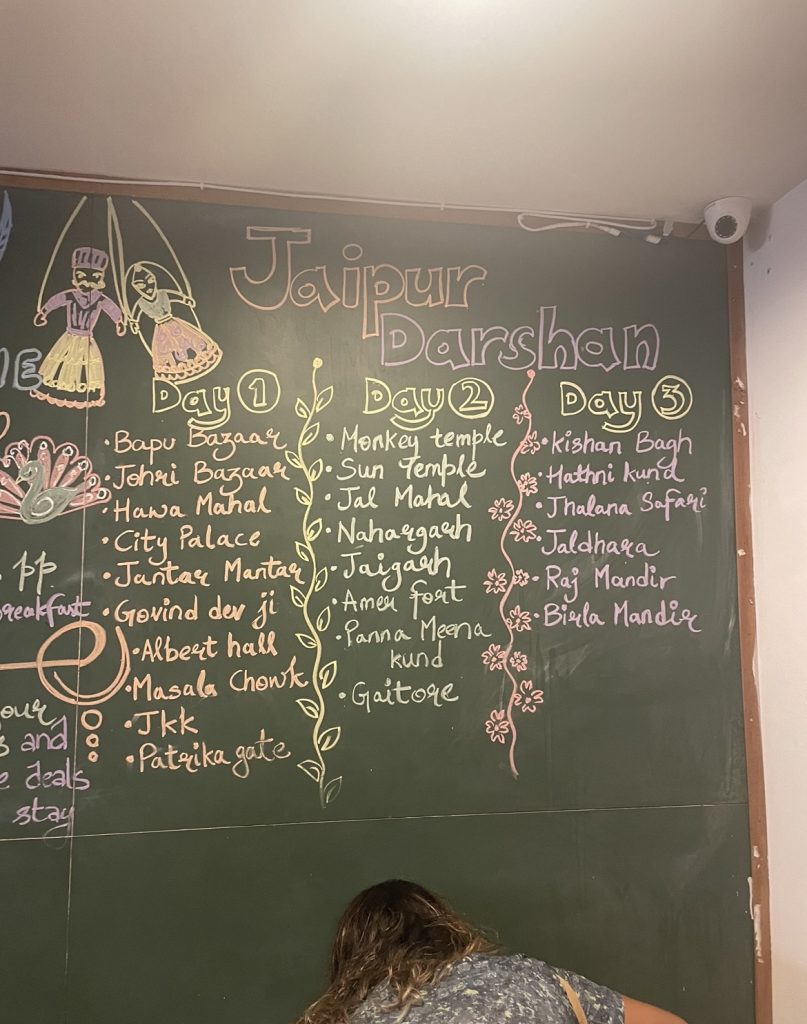 Jaipur
Darshan
Day 1
• Bapu Bazaar
• Johri Bazaar
• Hawa Mahal
• City Palace
• Jantar Mantar
• Govind dev ji
• Albert hall
• Masala Chowk
• JKK
• Patrika gate
Day 2
• Monkey temple
• Sun Temple
• Jal Mahal
• Nahargarh
• Jaigarh
• Amer fort
• Panna Meena
kund
• Gaitore
Day 3
• Kishan Bagh
• Hathni kund
• Jhalana Safari
• Jaldhara
• Raj Mandir
• Birla Mandir
pp
and
deals
stay